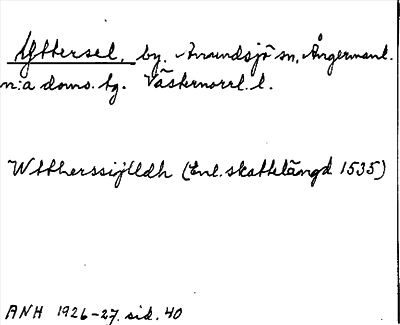 Yttersel, by. Anundsjö sn, Ångermanl.
n:a doms. tg. Västernorrl. l.
Wttherssijlldh (Enl. skattelängd 1535)
ANH 1926-27. sid. 40